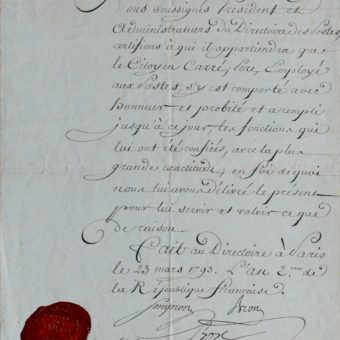 ous soussignés Président et
Administrateurs du Directoire des Postes,
certifions à qui il appartiendra que
le Citoyen Carré, Pere, Employé
aux Postes, s'y est comporté avec
honneur et probité et a rempli
jusqu'à ce jour, les fonctions qui
lui ont été confiées, avec la plus
grande exactitude; en foi de quoi
nous lui avons délivré le présent
pour lui servir et valoir ce que
de raison.
Fait au Directoire à Paris
le 23 mars 1793. L'an 2.me de
la République françoise.